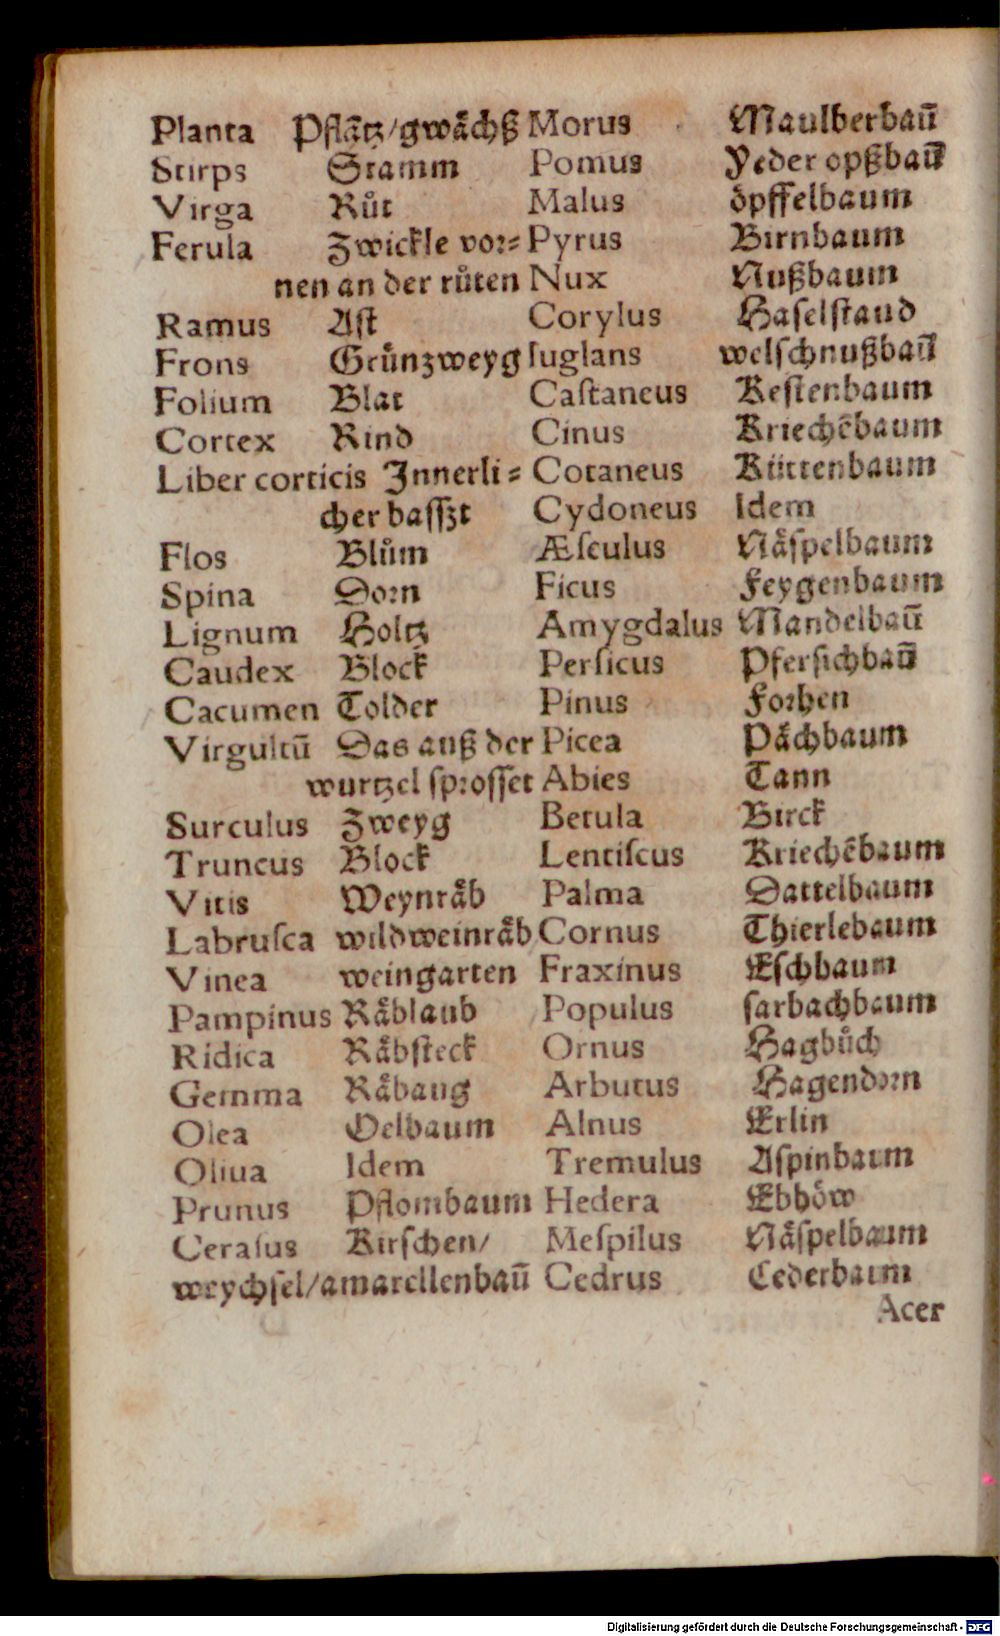 Planta Pflātz/gwaͤchß
Stirps Stamm
Virga Růt
Ferula Zwickle vor⸗
nen an der růten
Ramus Ast
Frons Gruͤnzweyg
Folium Blat
Cortex Rind
Liber corticis Jnnerli⸗
cher baſſzt
Flos Blům
Spina Dorn
Lignum Holtz
Caudex Block
Cacumen Tolder
Virgultū Das auß der
wurtzel ſproſſet
Surculus Zweyg
Truncus Block
Vitis Weynraͤb
Labruſca wildweinraͤb
Vinea weingarten
Pampinus Raͤblaub
Ridica Raͤbſteck
Gemma Raͤbaug
Olea Oelbaum
Oliua Idem
Prunus Pflombaum
Ceraſus Kirſchen/
weychſel/amarellenbaū
Morus Maulberbaū
Pomus Yeder opßbaū
Malus oͤpffelbaum
Pyrus Birnbaum
Nux Nußbaum
Corylus Haſelſtaud
Iuglans welſchnußbaū
Caſtaneus Keſtenbaum
Cinus Kriechēbaum
Cotaneus Küttenbaum
Cydoneus Idem
Æſculus Naͤſpelbaum
Ficus Feygenbaum
Amygdalus Mandelbaū
Perſicus Pferſichbaū
Pinus Forhen
Picea Paͤchbaum
Abies Tann
Betula Birck
Lentiſcus Kriechēbaum
Palma Dattelbaum
Cornus Thierlebaum
Fraxinus Eſchbaum
Populus ſarbachbaum
Ornus Hagbůch
Arbutus Hagendorn
Alnus Erlin
Tremulus Aſpinbaum
Hedera Ebhoͤw
Meſpilus Naͤſpelbaum
Cedrus Cederbaum
Acer
Digitalisierung gefördert durch die Deutsche Forschungsgemeinschaft - DFG